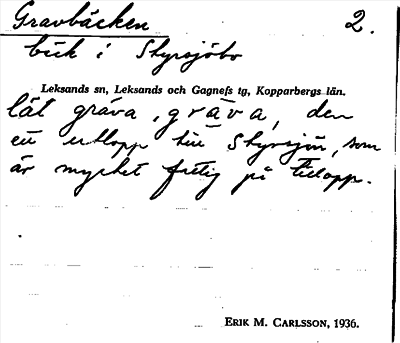 Gravbäcken 2.
bäck i Styrsjöbo
Leksands sn, Leksands och Gagnefs tg, Kopparbergs län.
låt gräva, gräva, den
ett utlopp till Styrsjön, som
är mycket fattig på tillopp.
ERIK M. CARLSSON, 1936.